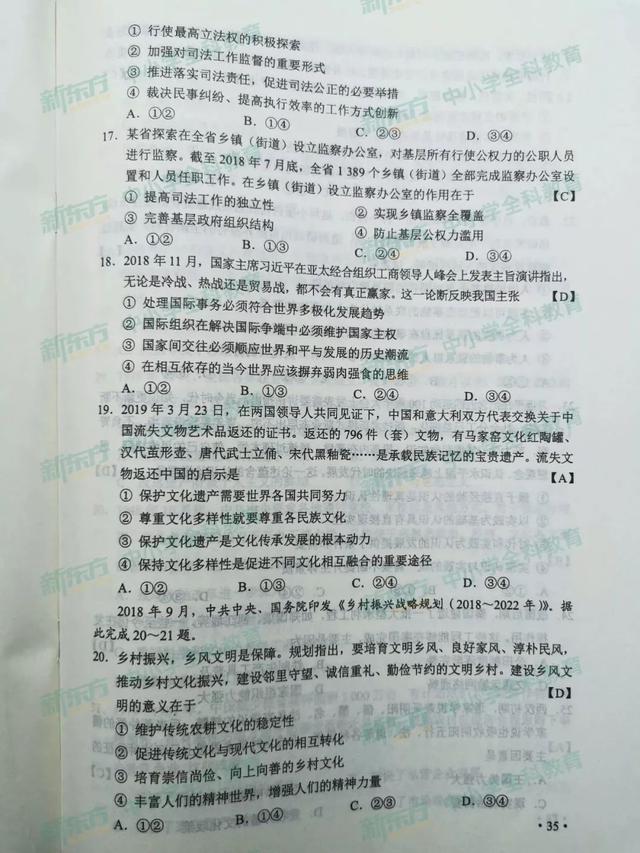 ① 行使最高立法权的积极探索
② 加强对司法工作监督的重要形式
③ 推进落实司法责任，促进司法公正的必要举措
④ 裁决民事纠纷、提高执行效率的工作方式创新
A．①② B．①④ C．②③ D．③④
17．某省探索在全省乡镇（街道）设立监察办公室，对基层所有行使公权力的公职人员
进行监察。截至 2018 年 7 月底，全省 1 389 个乡镇（街道）全部完成监察办公室设
置和人员任职工作。在乡镇（街道）设立监察办公室的作用在于 【C】
① 提高司法工作的独立性 ② 实现乡镇监察全覆盖
③ 完善基层政府组织结构 ④ 防止基层公权力滥用
A．①② B．①③ C．②④ D．③④
18．2018 年 11 月，国家主席习近平在亚太经合组织工商领导人峰会上发表主旨演讲指出，
无论是冷战、热战还是贸易战，都不会有真正赢家。这一论断反映我国主张 【D】
① 处理国际事务必须符合世界多极化发展趋势
② 国际组织在解决国际争端中必须维护国家主权
③ 国家间交往必须顺应世界和平与发展的历史潮流
④ 在相互依存的当今世界应该摒弃弱肉强食的思维
A．①② B．①③ C．②④ D．③④
19．2019 年 3 月 23 日，在两国领导人共同见证下，中国和意大利双方代表交换关于中
国流失文物艺术品返还的证书。返还的 796 件（套）文物，有马家窑文化红陶罐、
汉代茧形壶、唐代武士立俑、宋代黑釉瓷……是承载民族记忆的宝贵遗产。流失文
物返还中国的启示是 【A】
① 保护文化遗产需要世界各国共同努力
② 尊重文化多样性就要尊重各民族文化
③ 保护文化遗产是文化传承发展的根本动力
④ 保持文化多样性是促进不同文化相互融合的重要途径
A．①② B．①③ C．②④ D．③④
2018 年 9 月，中共中央、国务院印发《乡村振兴战略规划（2018～2022 年）》。据
此完成 20～21 题。
20．乡村振兴，乡风文明是保障。规划指出，要培育文明乡风、良好家风、淳朴民风，
推动乡村文化振兴，建设邻里守望、诚信重礼、勤俭节约的文明乡村。建设乡风文
明的意义在于 【D】
① 维护传统农耕文化的稳定性
② 促进传统文化与现代文化的相互转化
③ 培育崇信尚俭、向上向善的乡村文化
④ 丰富人们的精神世界，增强人们的精神力量
A．①② B．①④ C．②③ D．③④
· 35 ·
新东方 中小学全科教育